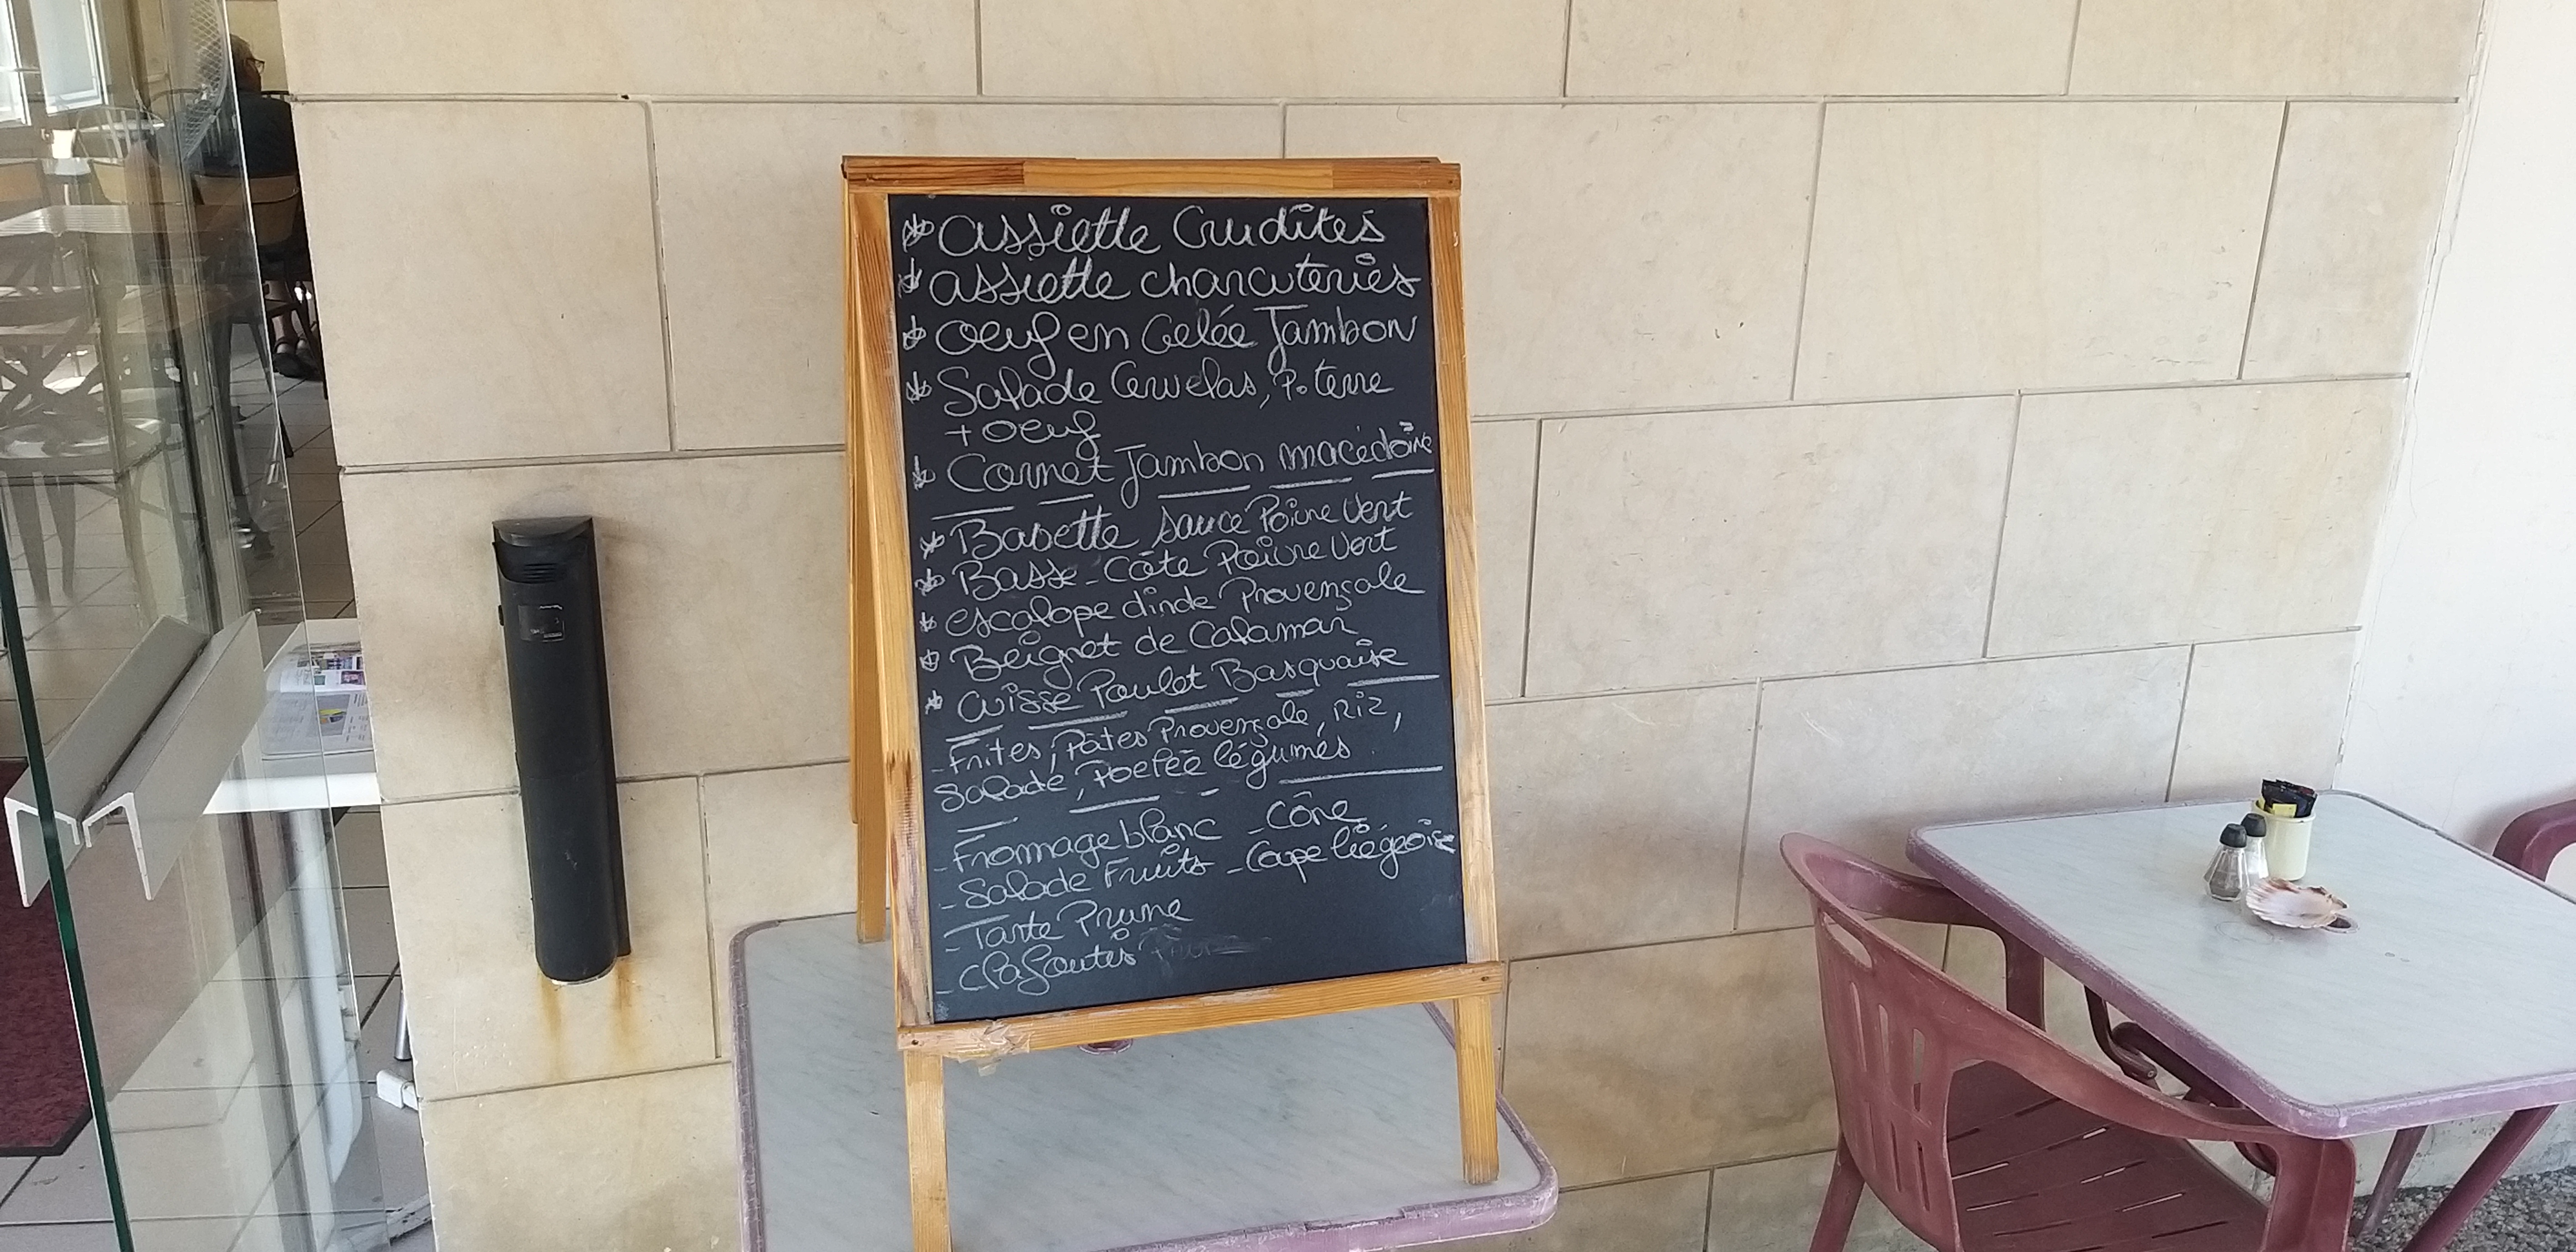 assiette Crudités
assiette charcuteries
oeuf en Gelée Jambon
Salade Cervelas, P. terre
+ oeuf
Cornet Jambon macédoine
Bavette sauce Poivre Vert
Basse-Côte Poivre Vert
escalope dinde Provençale
Beignet de Calamar
Cuisse Poulet Basquaise
- Frites, Pâtes Provençale, Riz,
Salade, Poelée légumes
- Fromage blanc - Cône
- Salade Fruits - Coupe liégeoise
- Tarte Prune
- Clafoutis